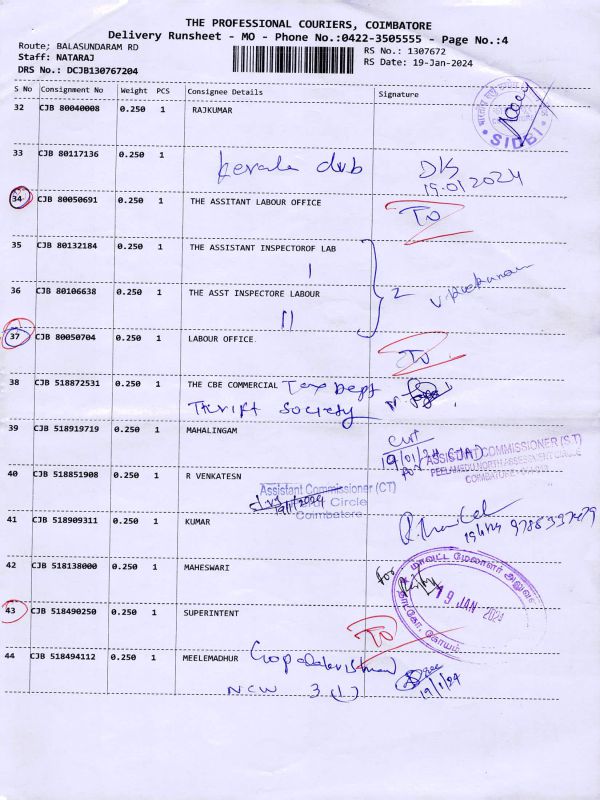 THE PROFESSIONAL COURIERS, COIMBATORE
Delivery Runsheet - MO - Phone No.:0422-3505555 - Page No.:4
Route; BALASUNDARAM RD
Staff: NATARAJ
DRS No.: DCJB130767204
RS No.: 1307672
RS Date: 19-Jan-2024
S No Consignment No Weight PCS Consignee Details Signature
32 CJB 80040008 0.250 1 RAJKUMAR
SIDBI
33 CJB 80117136 0.250 1
kerala
19.01.2024
34 CJB 80050691 0.250 1 THE ASSITANT LABOUR OFFICE
TO
35 CJB 80132184 0.250 1 THE ASSISTANT INSPECTOROF LAB
I
2
36 CJB 80106638 0.250 1 THE ASST INSPECTORE LABOUR
II
37 CJB 80050704 0.250 1 LABOUR OFFICE
TO
38 CJB 518872531 0.250 1 THE CBE COMMERCIAL Tax Dept
Thrift Society
39 CJB 518919719 0.250 1 MAHALINGAM
19/01/24
ASSISTANT COMMISSIONER (ST)
PEELAMEDU NORTH ASSESSMENT CIRCLE
COIMBATORE
40 CJB 518851908 0.250 1 R VENKATESN
Assistant Commissioner (CT)
Circle
Coimbatore
41 CJB 518909311 0.250 1 KUMAR
42 CJB 518138000 0.250 1 MAHESWARI
For
மாவட்ட மேலாளர் அலுவ
19 JAN 2024
43 CJB 518490250 0.250 1 SUPERINTENT
TO
44 CJB 518494112 0.250 1 MEELEMADHUR Gopalakrishnan
NCW 3 (1)
19/1/24